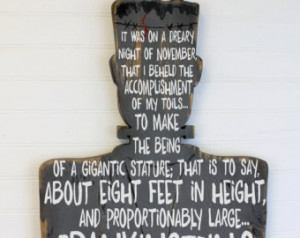 IT WAS ON A DREARY
NIGHT OF NOVEMBER
THAT I BEHELD THE
ACCOMPLISHMENT
OF MY TOILS...
TO MAKE
THE BEING
OF A GIGANTIC STATURE; THAT IS TO SAY,
ABOUT EIGHT FEET IN HEIGHT,
AND PROPORTIONABLY LARGE...